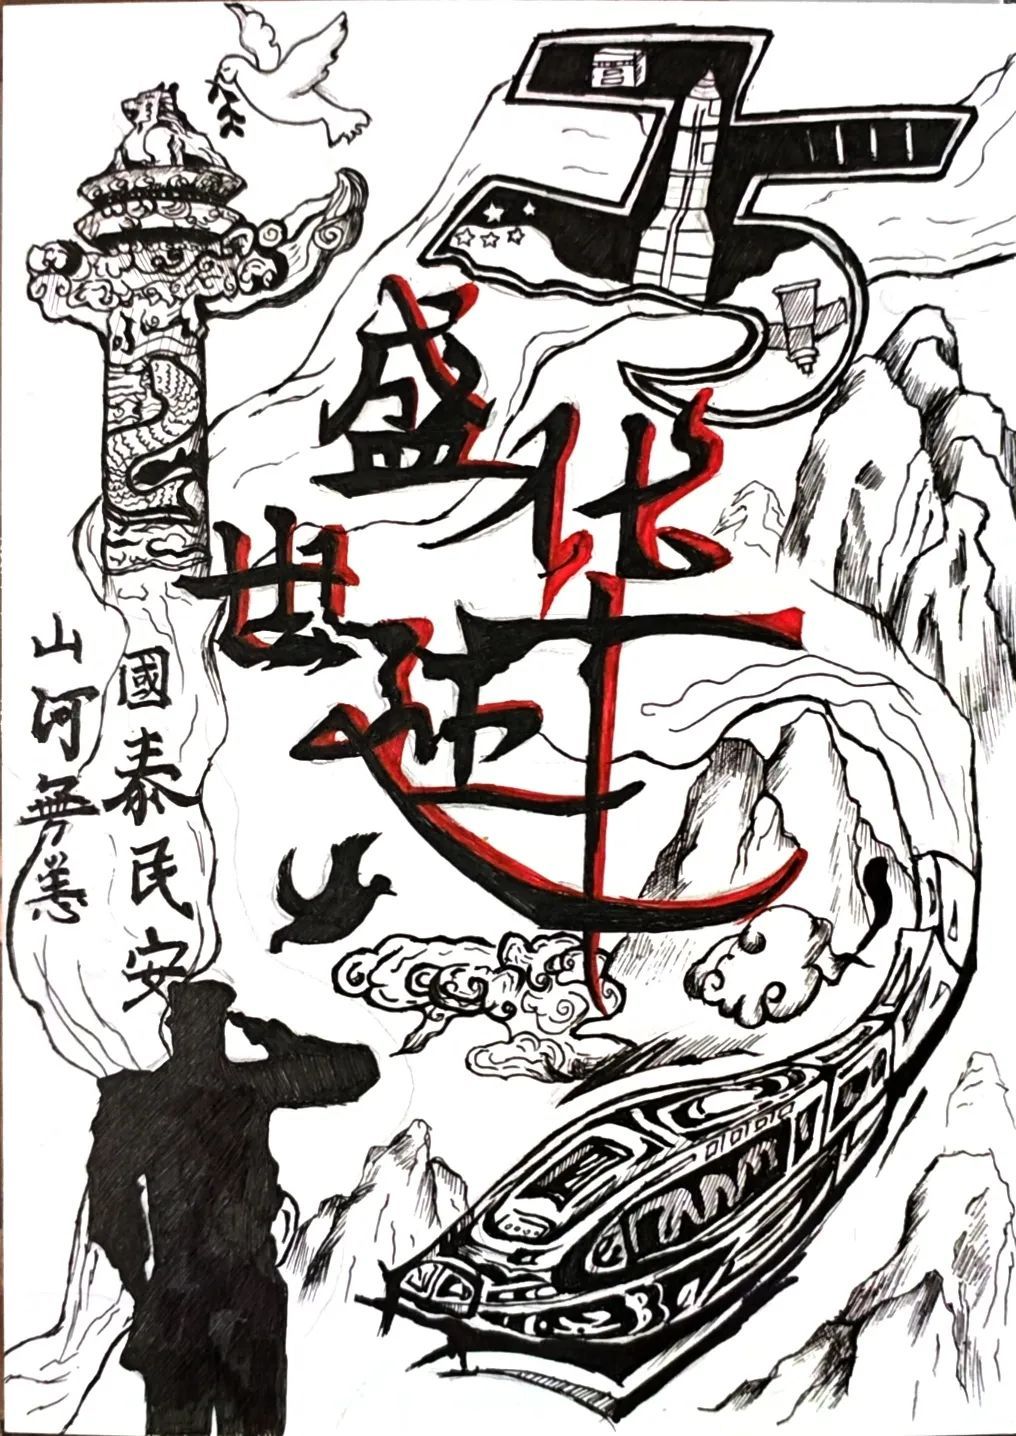 75
盛世
华诞
山河無恙
國泰民安